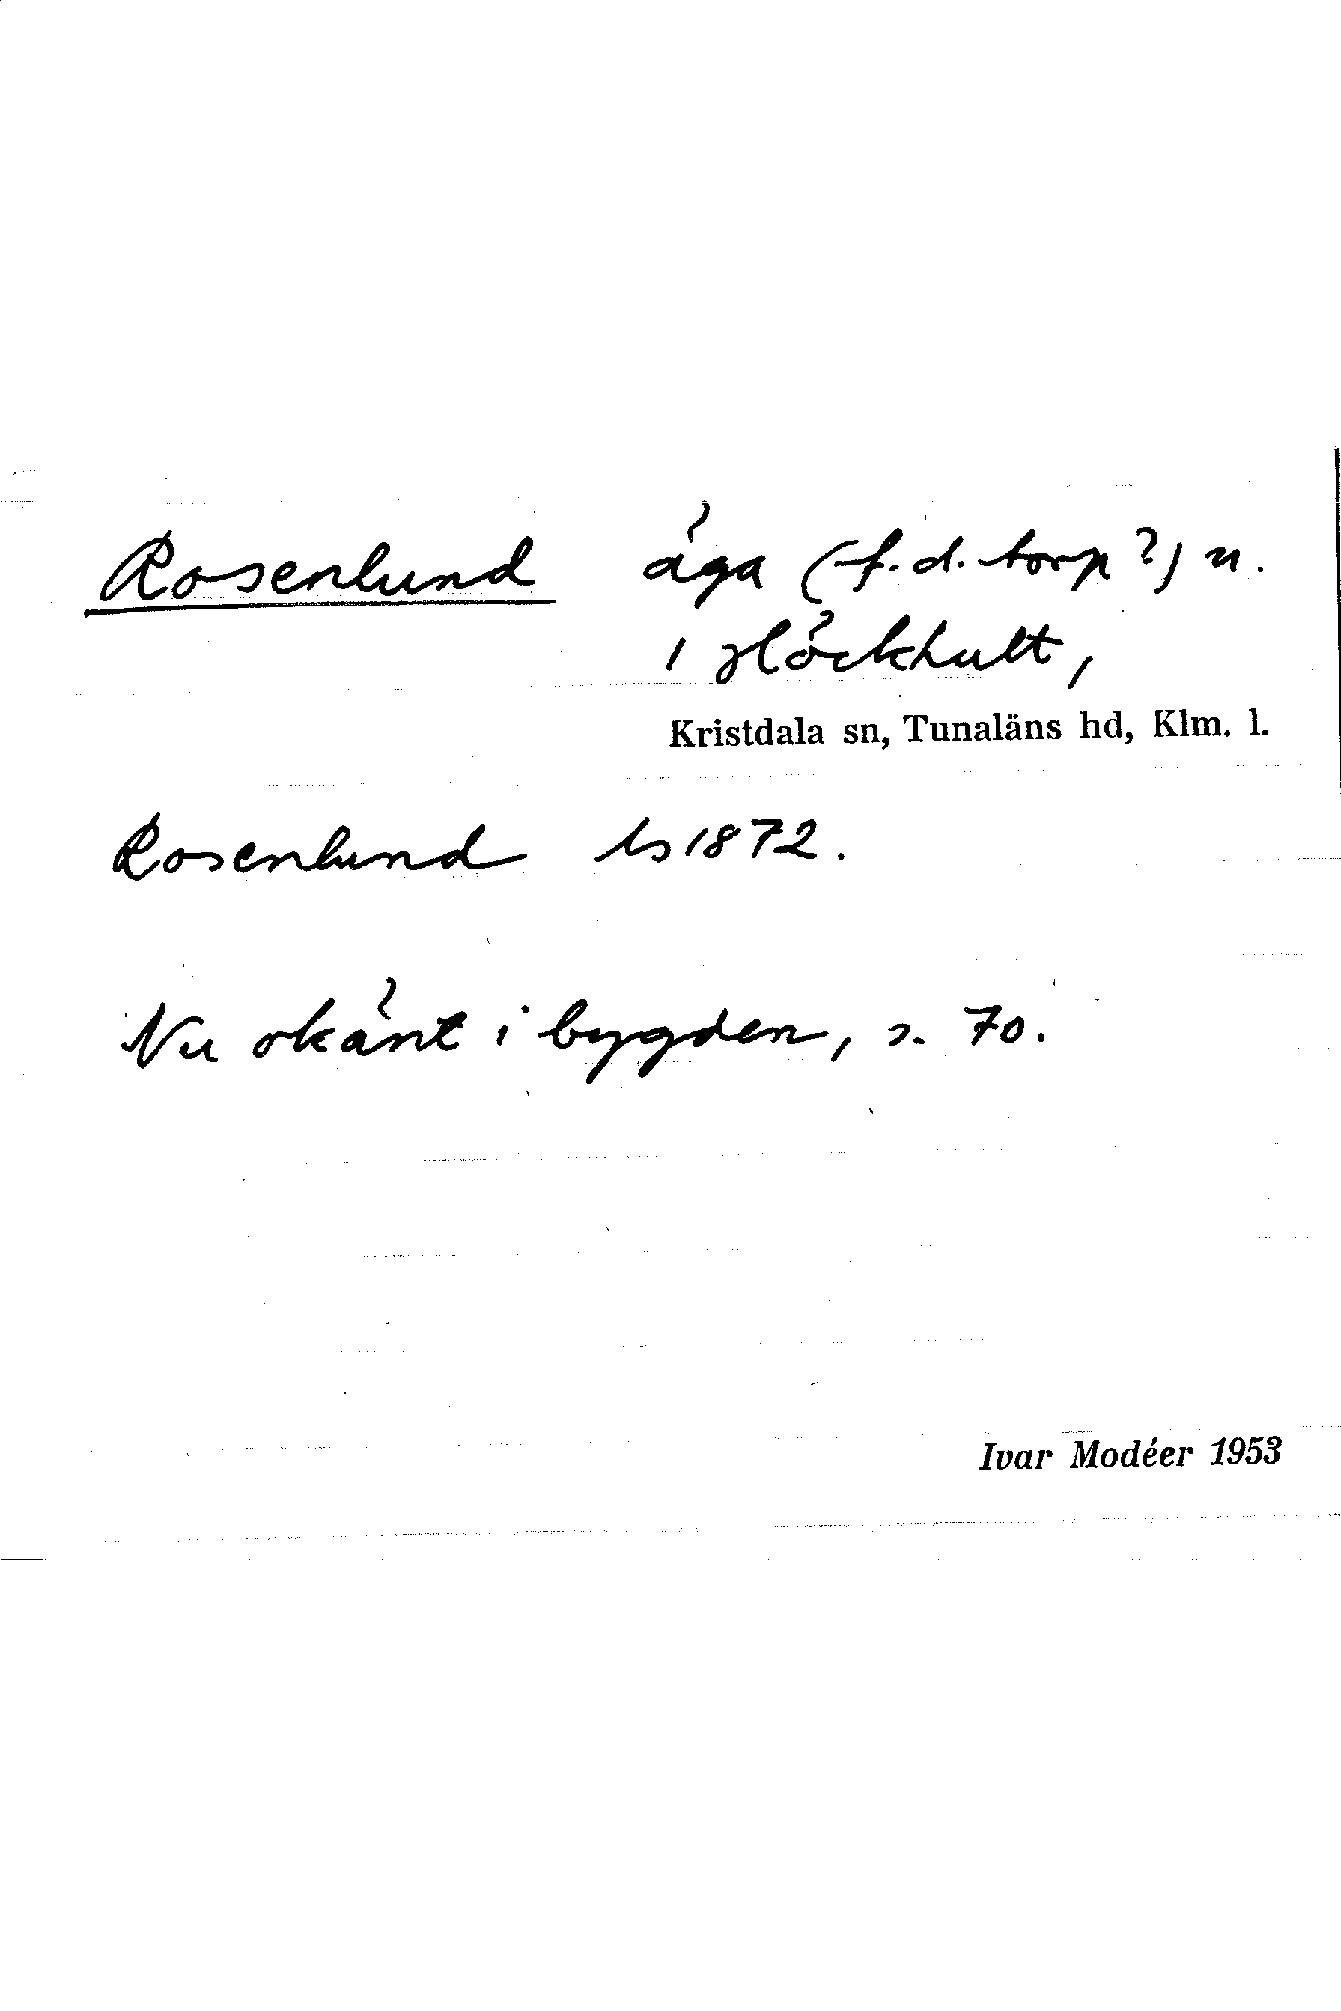 Rosenlund äga (f.d. torp?) n.
i Höckhult,
Kristdala sn, Tunaläns hd, Klm. l.
Rosenlund ls 1872.
Nu okänt i bygden, s. 70.
Ivar Modéer 1953